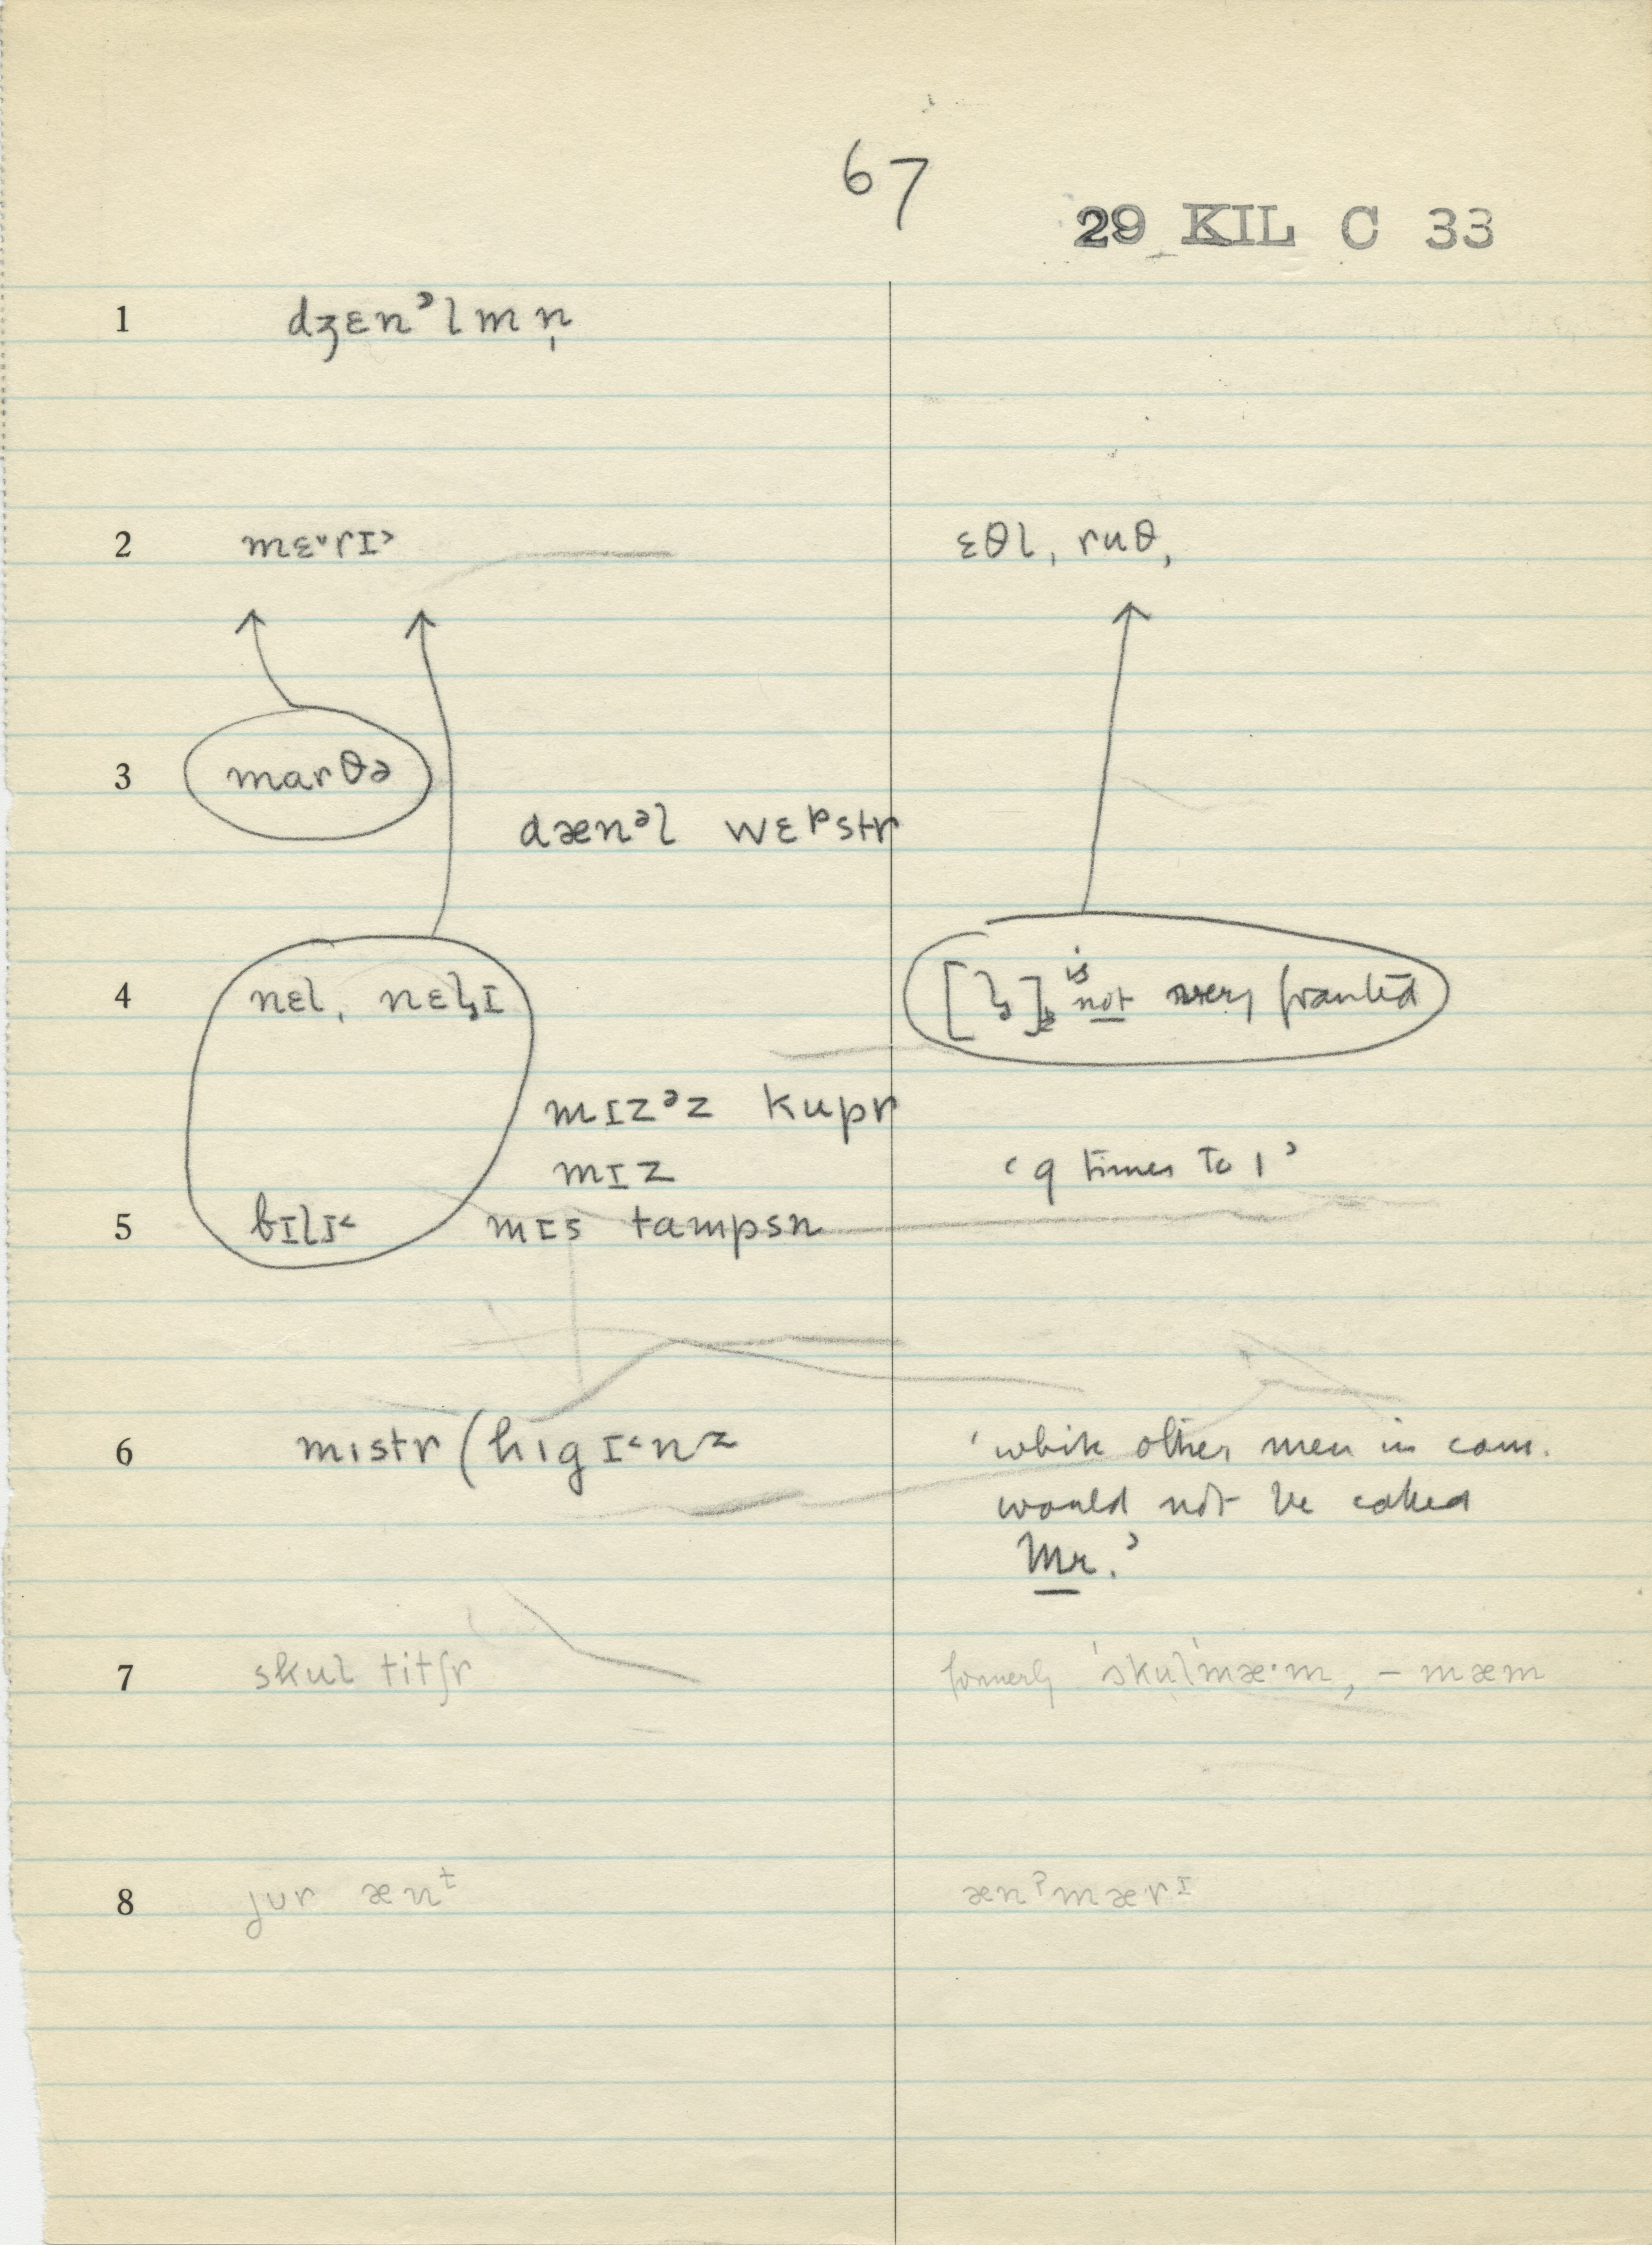 67
29 KIL C 33
1 dʒɛnᵊlmn̩
2 mɛ˅rɪ˃ ɛθl, ruθ,
3 marθə
dænᵊl wɛᵖstr
4 nɛl, nɛl̬ɪ [l̬] is not very fronted
mɪzᵊz kupr
mɪz ‘9 times to 1’
5 bɪlɪ˂ mɪs tampsn
6 mɪstr (hɪgɪ˂nz ‘white other men in com.
would not be called
Mr.’
7 skul titʃr formerly ˈskulˈmæ·m, – mæm
8 jur ænᵗ ænˀmærɪ